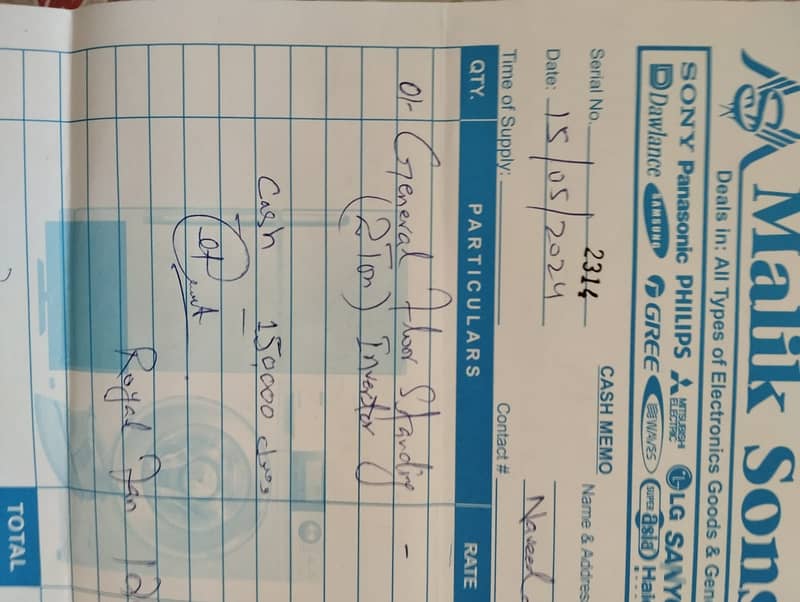 Malik Sons
Deals in: All Types of Electronics Goods & Gen
SONY Panasonic PHILIPS MITSUBISHI ELECTRIC LG SANY
Dawlance SAMSUNG GREE WAVES SUPER asia Hai
CASH MEMO
Serial No. 2314
Name & Address
Date: 15/05/2024
Naveed
Time of Supply:
Contact #
QTY. PARTICULARS RATE
01- General Floor Standing -
(2 Ton) Inverter
Cash 150000
Royal Fan 12
TOTAL